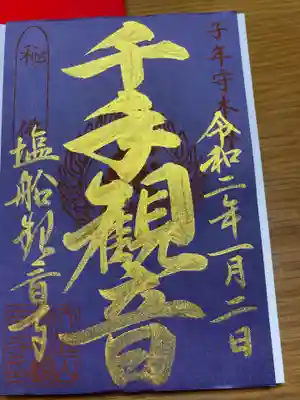 子年守本尊
令和二年一月二日
千手観音
秘仏
塩船観音寺